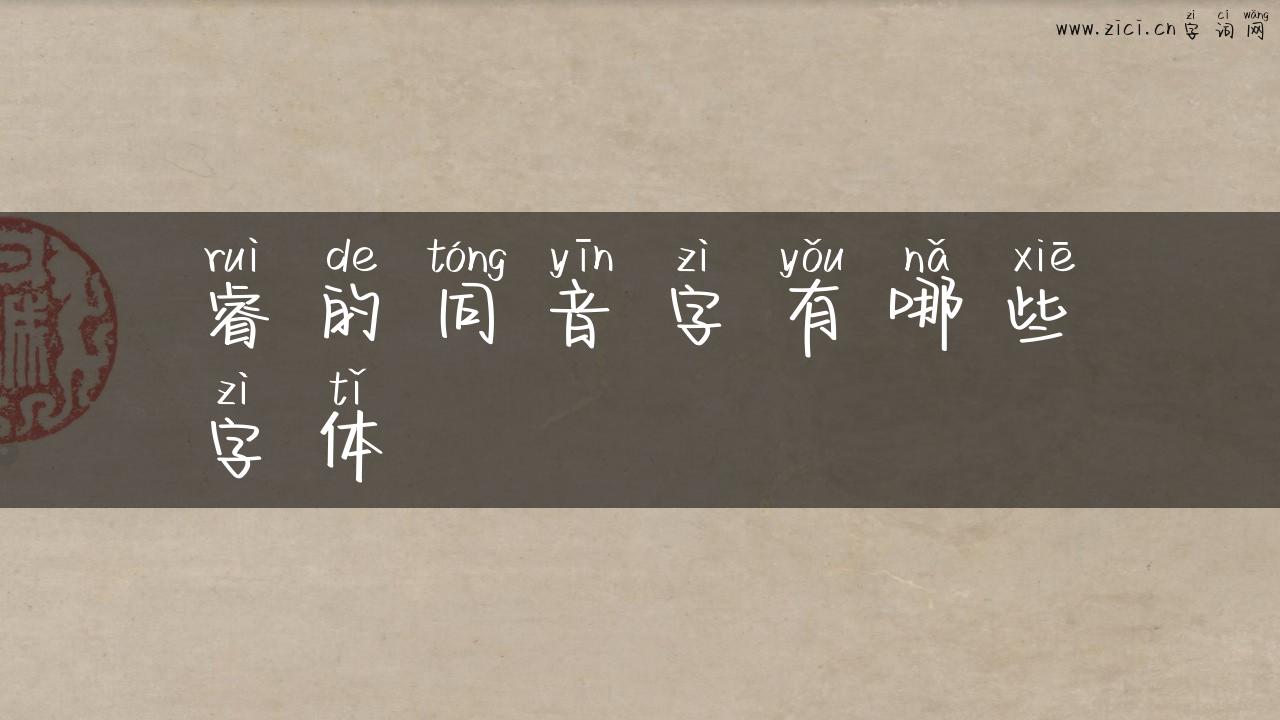 www.zici.cn 字词网
zì cí wǎng
ruì de tóng yīn zì yǒu nǎ xiē
睿的同音字有哪些
zì tǐ
字体